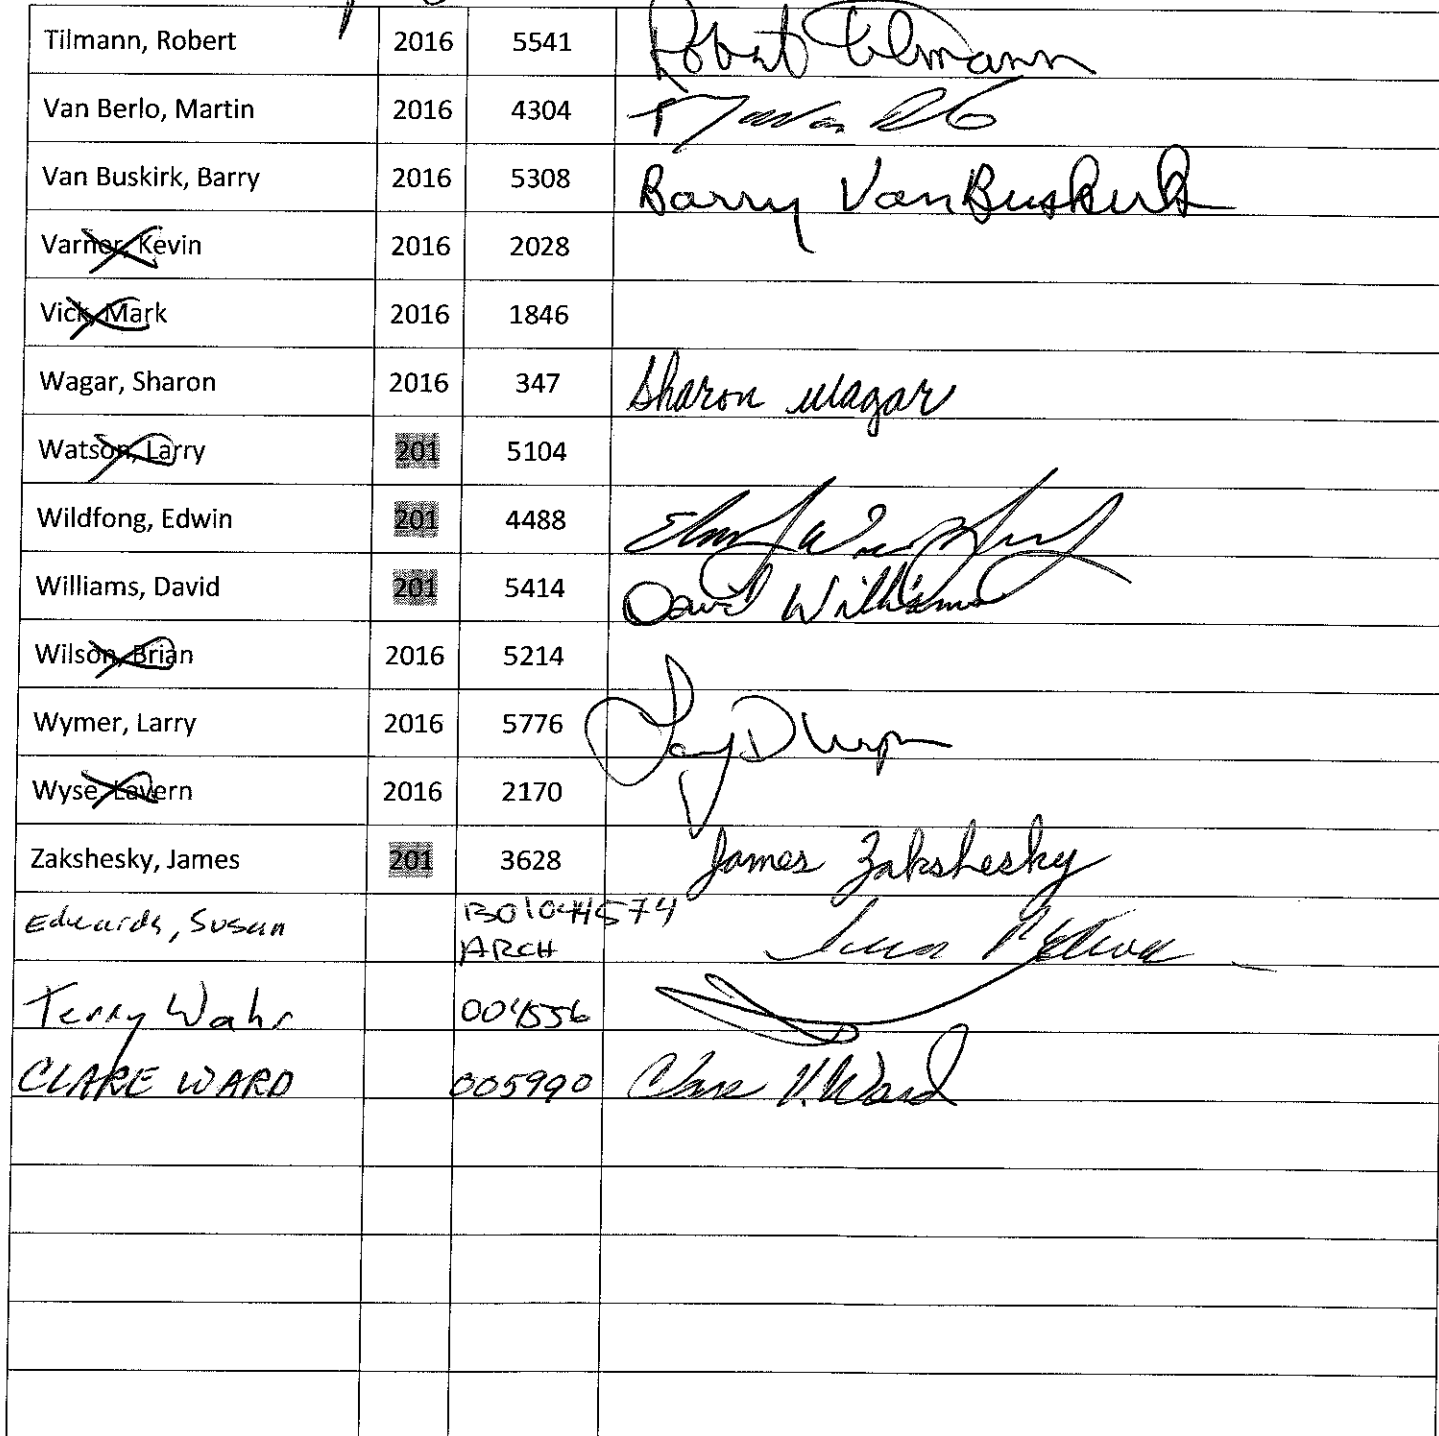 Tilmann, Robert 2016 5541 Robert Tilmann
Van Berlo, Martin 2016 4304
Van Buskirk, Barry 2016 5308 Barry VanBuskirk
Varner, Kevin 2016 2028
Vick, Mark 2016 1846
Wagar, Sharon 2016 347 Sharon Wagar
Watson, Larry 201 5104
Wildfong, Edwin 201 4488
Williams, David 201 5414 David Williams
Wilson, Brian 2016 5214
Wymer, Larry 2016 5776
Wyse, Lavern 2016 2170
Zakshesky, James 201 3628 James Zakshesky
Edwards, Susan
ARCH
Terry Wahr 004556
CLARE WARD 005990 Clare V. Ward